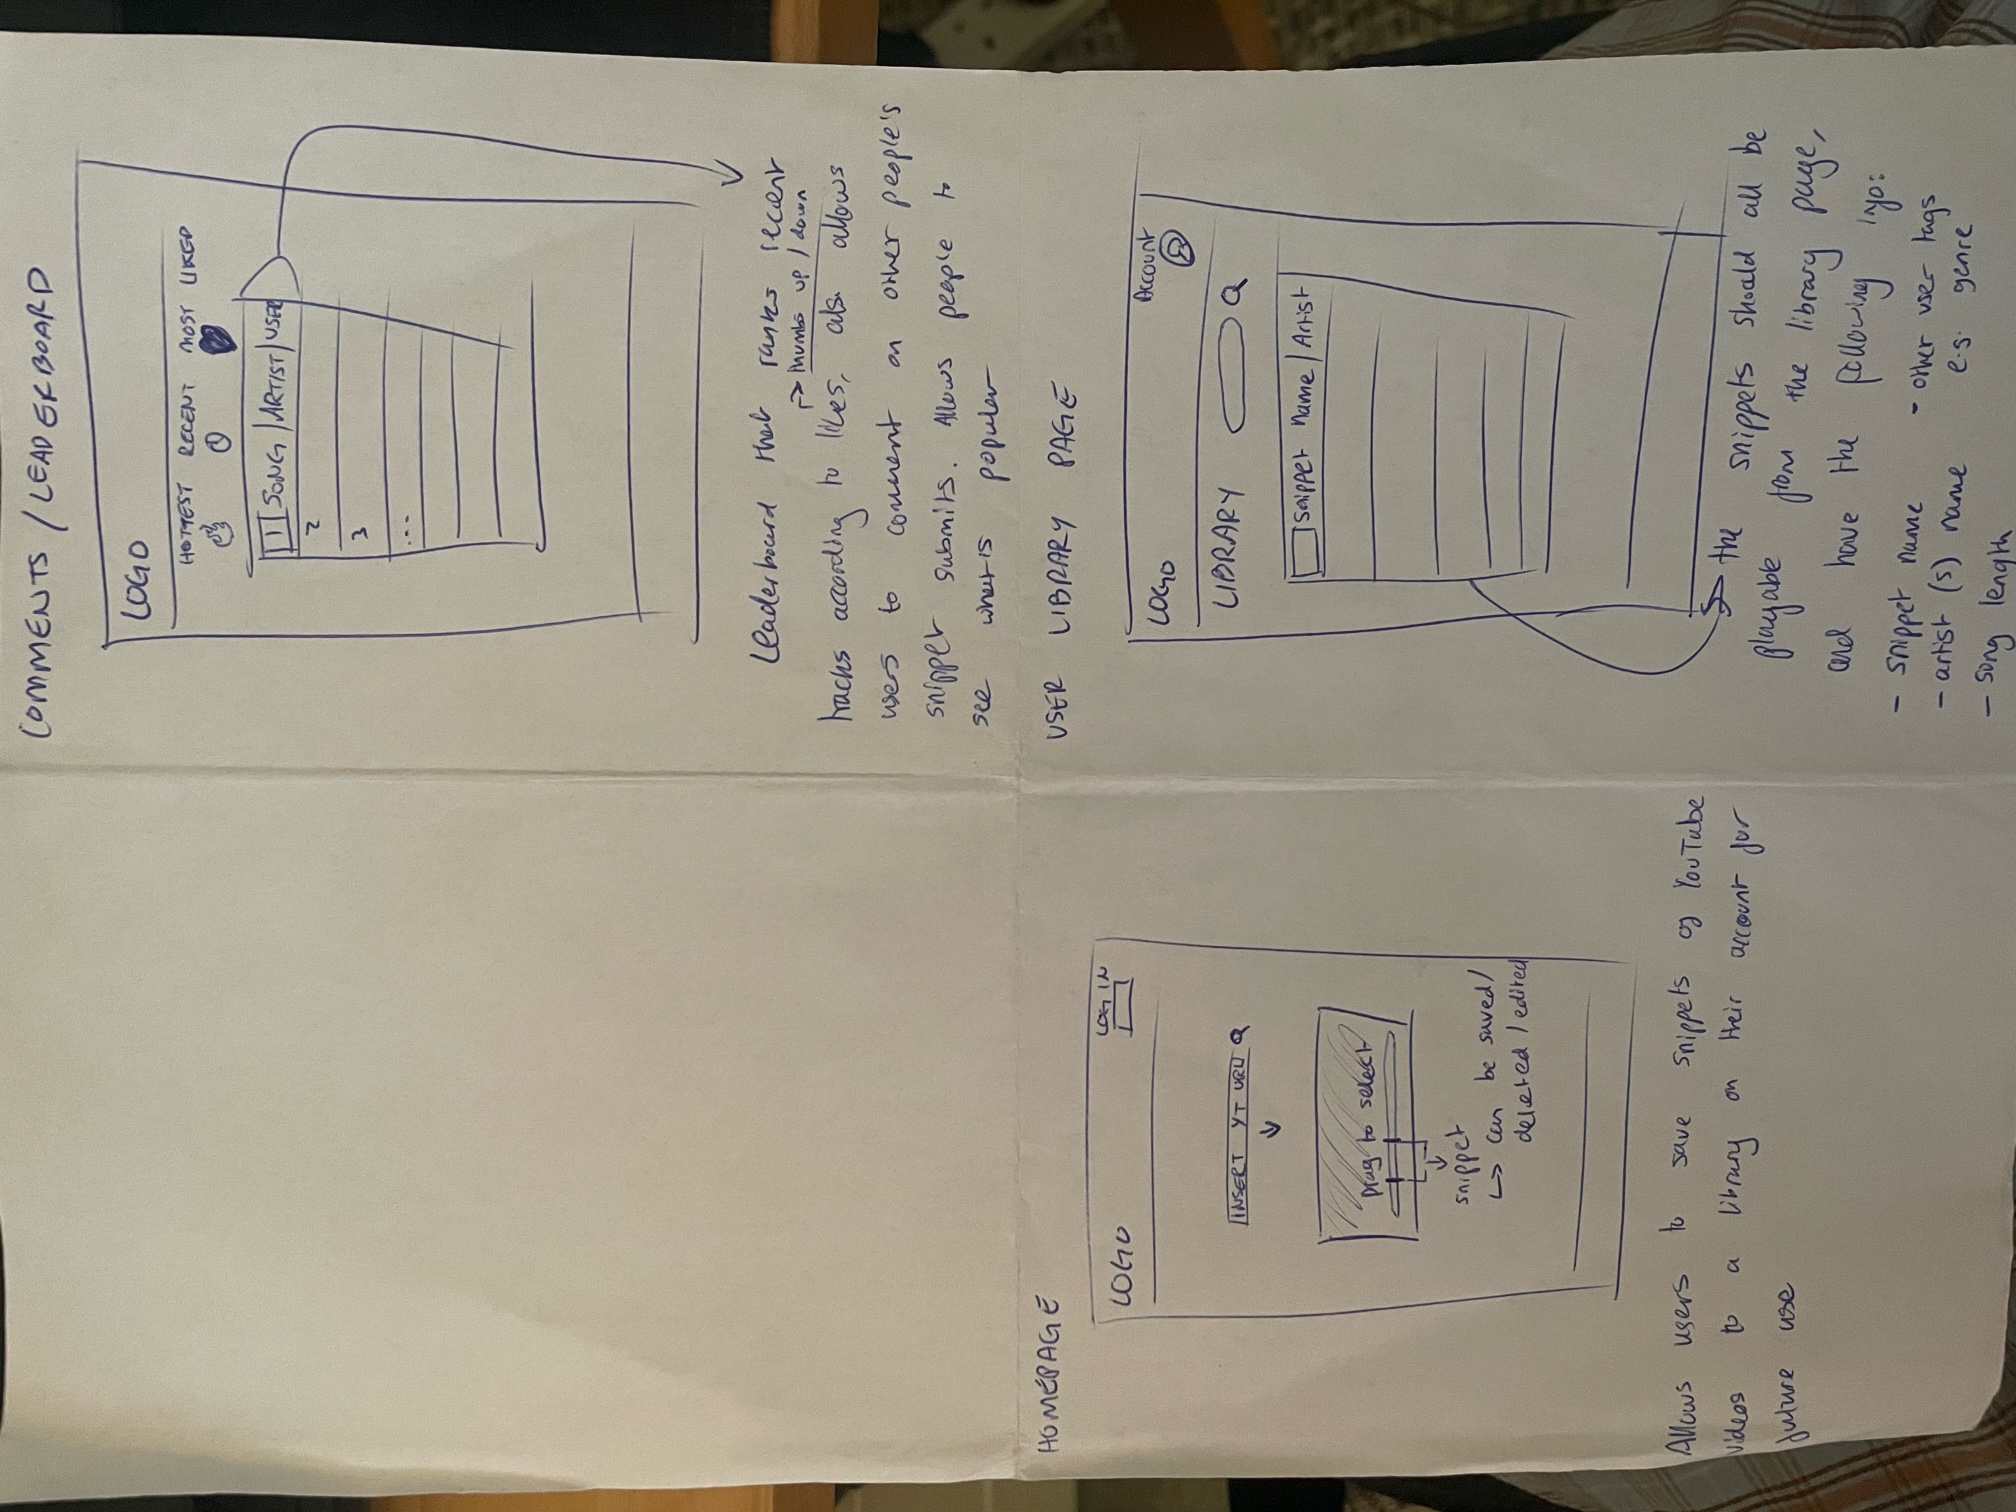 COMMENTS / LEADERBOARD
LOGO
HOTTEST RECENT MOST LIKED
1 SONG | ARTIST | USER
2
3
...
Leaderboard that ranks recent
→ thumbs up / down
tracks according to likes, als. allows
users to comment on other people's
snippet submits. Allows people to
see what is popular
HOMEPAGE
LOGO LOG IN
INSERT YT URL
Drag to select
snippet
↳ can be saved/
deleted / edited
Allows users to save snippets of YouTube
videos to a library on their account for
future use
USER LIBRARY PAGE
LOGO Account
LIBRARY
Snippet name | Artist
the snippets should all be
playable from the library page,
and have the following info:
- snippet name
- artist (s) name
- song length
- other user tags
e.g. genre